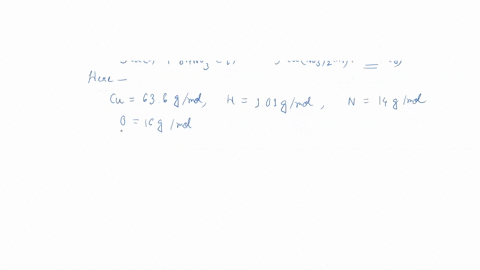 Here —
Cu = 63.6 g/mol, H = 1.01 g/mol, N = 14 g/mol
O = 16 g/mol